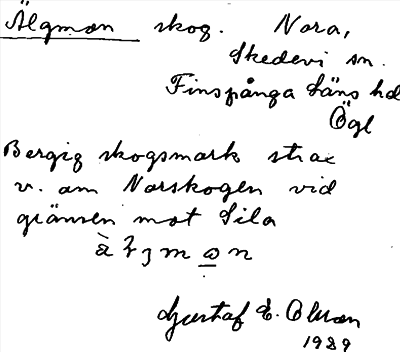 Älgmon skog. Nora,
Skedevi sn.
Finspånga läns hd
Ögl
Bergig skogsmark strax
v. om Norskogen vid
gränsen mot Sila
Gustaf E. Olsson
1929